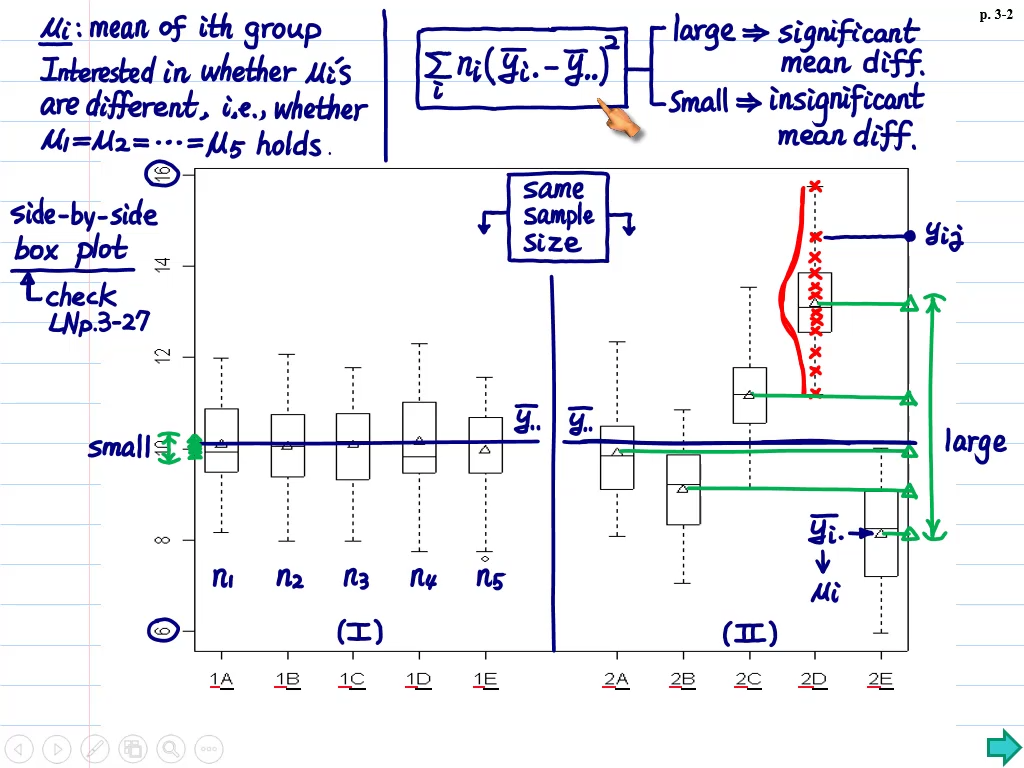 p. 3-2
μi : mean of ith group
Interested in whether μi's
are different, i.e., whether
μ1=μ2=⋯=μ5 holds.
∑i ni(y̅i. − y̅..)²
large ⇒ significant
mean diff.
small ⇒ insignificant
mean diff.
side-by-side
box plot
check
LNp.3-27
same
sample
size
16
14
12
10
8
6
small
y̅..
y̅..
yij
large
y̅i.
μi
n1 n2 n3 n4 n5
(I)
(II)
1A 1B 1C 1D 1E 2A 2B 2C 2D 2E